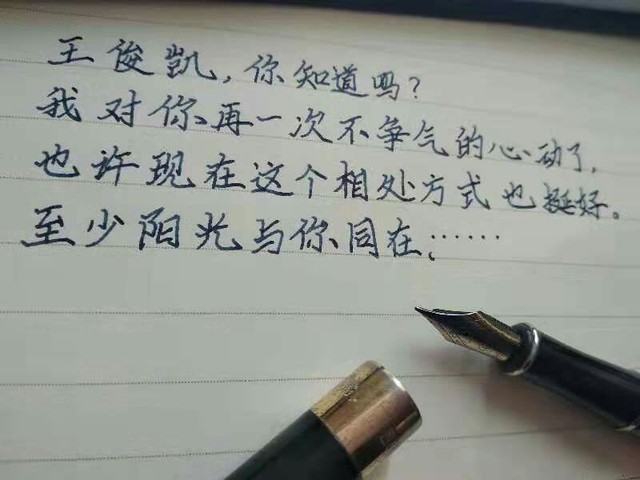 王俊凯,你知道吗?
我对你再一次不争气的心动了,
也许现在这个相处方式也挺好。
至少阳光与你同在,……